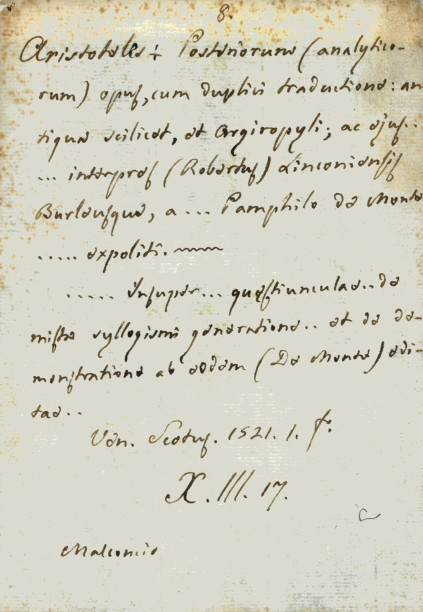 8.
Aristoteles + Posteriorum (analytico-
rum) opus, cum duplici traductione: an
tiqua scilicet, et Argiropyli; ac ejus..
... interpres (Robertus) Linconiensis
Burleusque, a ... Pamphilo de Monte
..... expoliti.
..... Insuper... quęstiunculae.. de
mistę syllogismi generatione.. et de de-
monstratione ab eodem (De Monte) edi-
tae..
Ven. Scotus. 1521. 1. f.
X. III. 17.
Malconcio